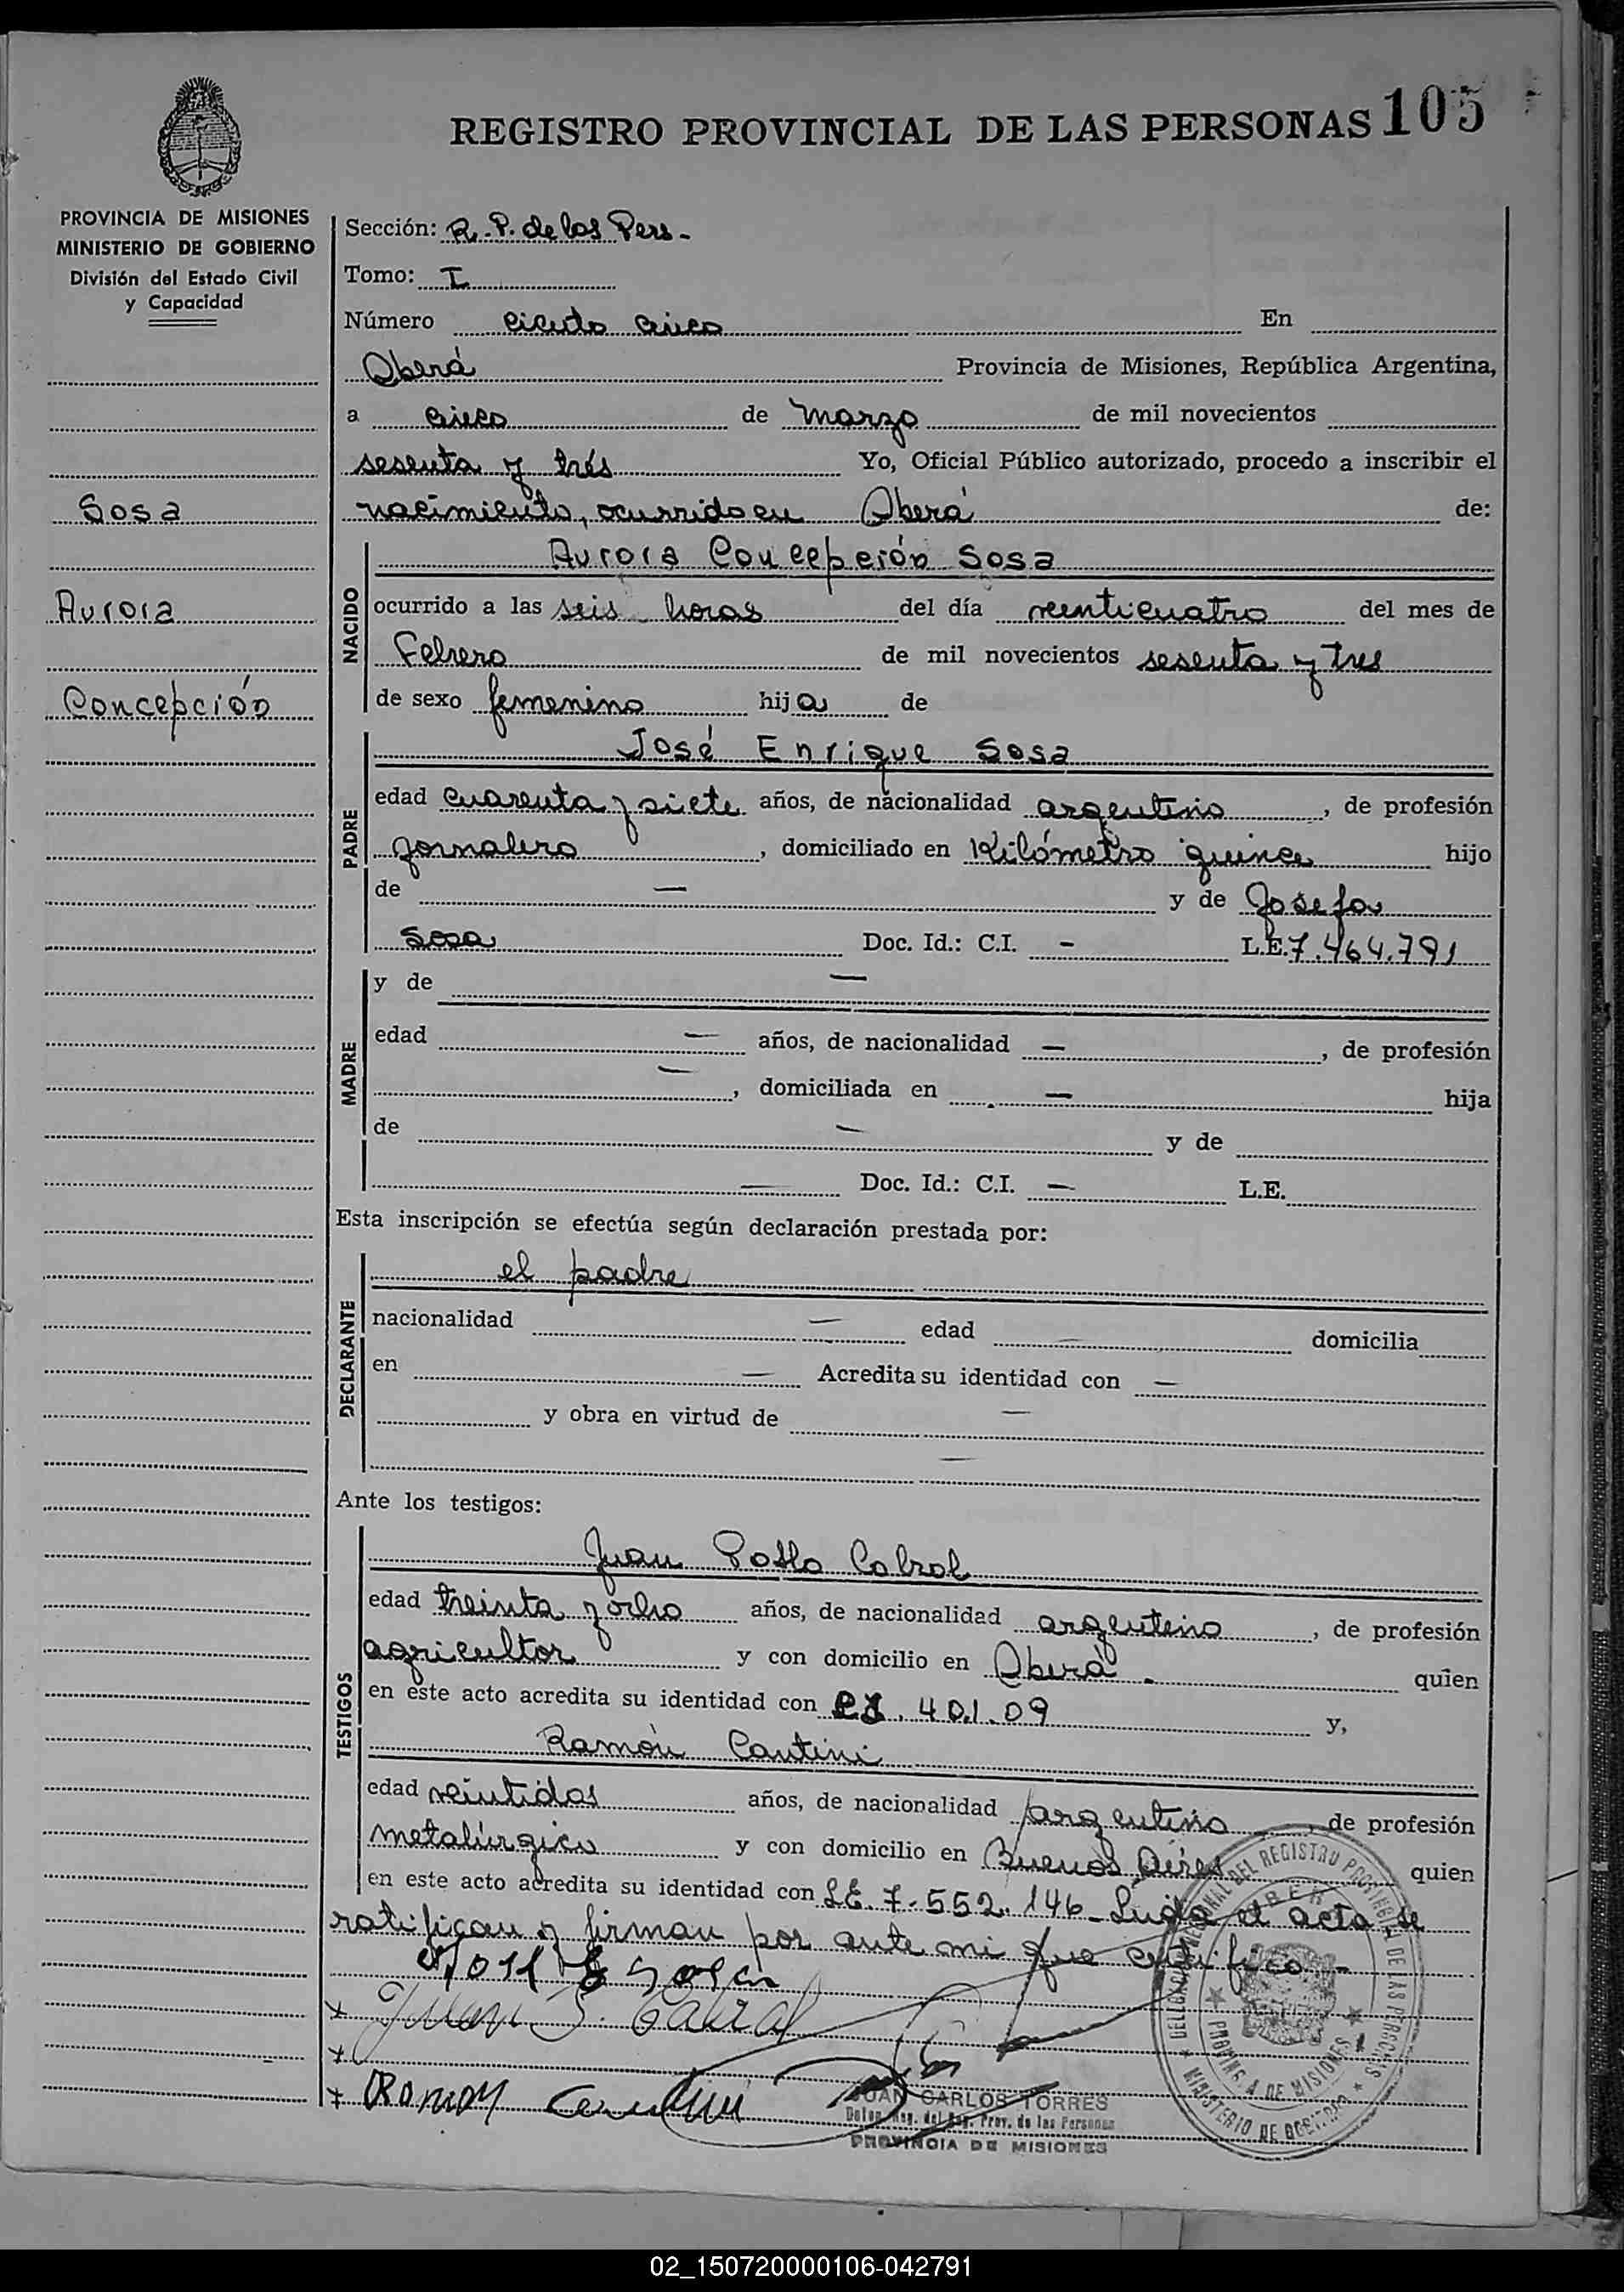 REGISTRO PROVINCIAL DE LAS PERSONAS 105
PROVINCIA DE MISIONES
MINISTERIO DE GOBIERNO
División del Estado Civil
y Capacidad
Sosa
Aurora
Concepción
Sección: R. P. de las Pers.
Tomo: I
Número ciento cinco En
Oberá Provincia de Misiones, República Argentina,
a cinco de marzo de mil novecientos
sesenta y trés Yo, Oficial Público autorizado, procedo a inscribir el
nacimiento, ocurrido en Oberá de:
NACIDO
Aurora Concepción Sosa
ocurrido a las seis horas del día veinticuatro del mes de
Febrero de mil novecientos sesenta y tres
de sexo femenino hija de
PADRE
José Enrique Sosa
edad cuarenta y siete años, de nacionalidad argentino, de profesión
jornalero, domiciliado en Kilómetro quince hijo
de — y de Josefa
Sosa Doc. Id.: C.I. - L.E. 7.464.791
MADRE
y de —
edad — años, de nacionalidad —, de profesión
—, domiciliada en — hija
de — y de
— Doc. Id.: C.I. — L.E.
Esta inscripción se efectúa según declaración prestada por:
DECLARANTE
el padre
nacionalidad — edad — domicilia
en — Acredita su identidad con —
y obra en virtud de —
—
Ante los testigos:
TESTIGOS
Juan Cabral
edad treinta y ocho años, de nacionalidad argentino, de profesión
agricultor y con domicilio en Oberá. quien
en este acto acredita su identidad con 401.09 y,
Ramón Cantini
edad veintidos años, de nacionalidad argentino, de profesión
metalúrgico y con domicilio en Buenos Aires quien
en este acto acredita su identidad con L.E. 7.552.146 - Leida el acta, se
ratifican y firman por ante mi que certifico -
Juan P. Cabral
Ramon Cantini
JUAN CARLOS TORRES
Deleg. Reg. del Reg. Prov. de las Personas
PROVINCIA DE MISIONES
DELEGACION REGIONAL DEL REGISTRO PROVINCIAL DE LAS PERSONAS
OBERA
PROVINCIA DE MISIONES
MINISTERIO DE GOBIERNO
02_150720000106-042791